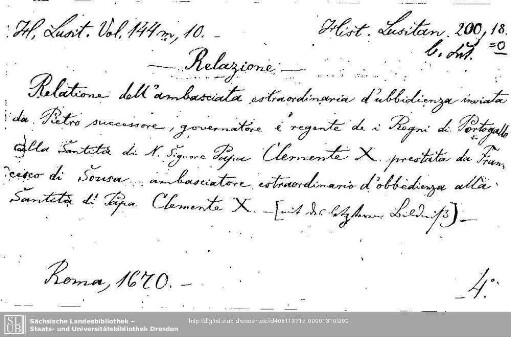 H. Lusit. Vol. 144m, 10. -
Hist. Lusitan. 200, 18.
=0
— Relazione. —
Relatione dell'ambasciata estraordinaria d'ubbidienza inviata
da Pietro successore, governatore e regente de i Regni di Portogallo
alla Santità di N. Signore Papa Clemente X. prestata da Fran
cesco di Sousa ambasciatore estraordinario d'obbedienza alla
Santità di Papa Clemente X. - [mit des letzteren Bildniß]. -
Roma, 1670. -
4°.
SLUB
Sächsische Landesbibliothek –
Staats- und Universitätsbibliothek Dresden